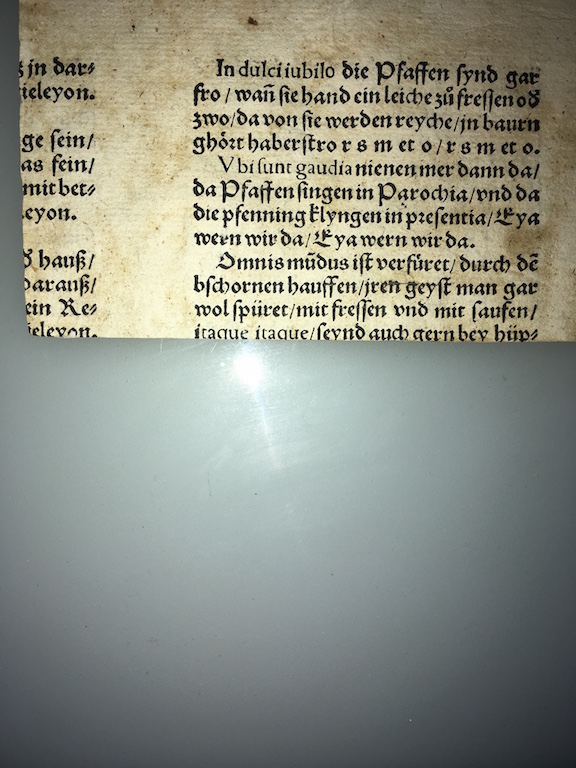 ꝫ jn dar⸗
ieleyon.
ge sein/
as fein/
mit bet⸗
eyon.
ð hauß/
darauß/
ein Re⸗
ieleyon.
In dulci iubilo die Pfaffen synd gar
fro / wañ sie hand ein leiche zů fressen oð
zwo/da von sie werden reyche/jn baurn
ghört haberstro r s m et o / r s m et o.
Vbi sunt gaudia nienen mer dann da/
da Pfaffen singen in Parochia/vnd da
die pfenning klyngen in presentia/Eya
wern wir da/Eya wern wir da.
Omnis mũdus ist verfüret/durch dẽ
bschornen hauffen/jren geyst man gar
wol spüret/mit fressen vnd mit saufen/
itaque itaque/seynd auch gern bey hüp⸗